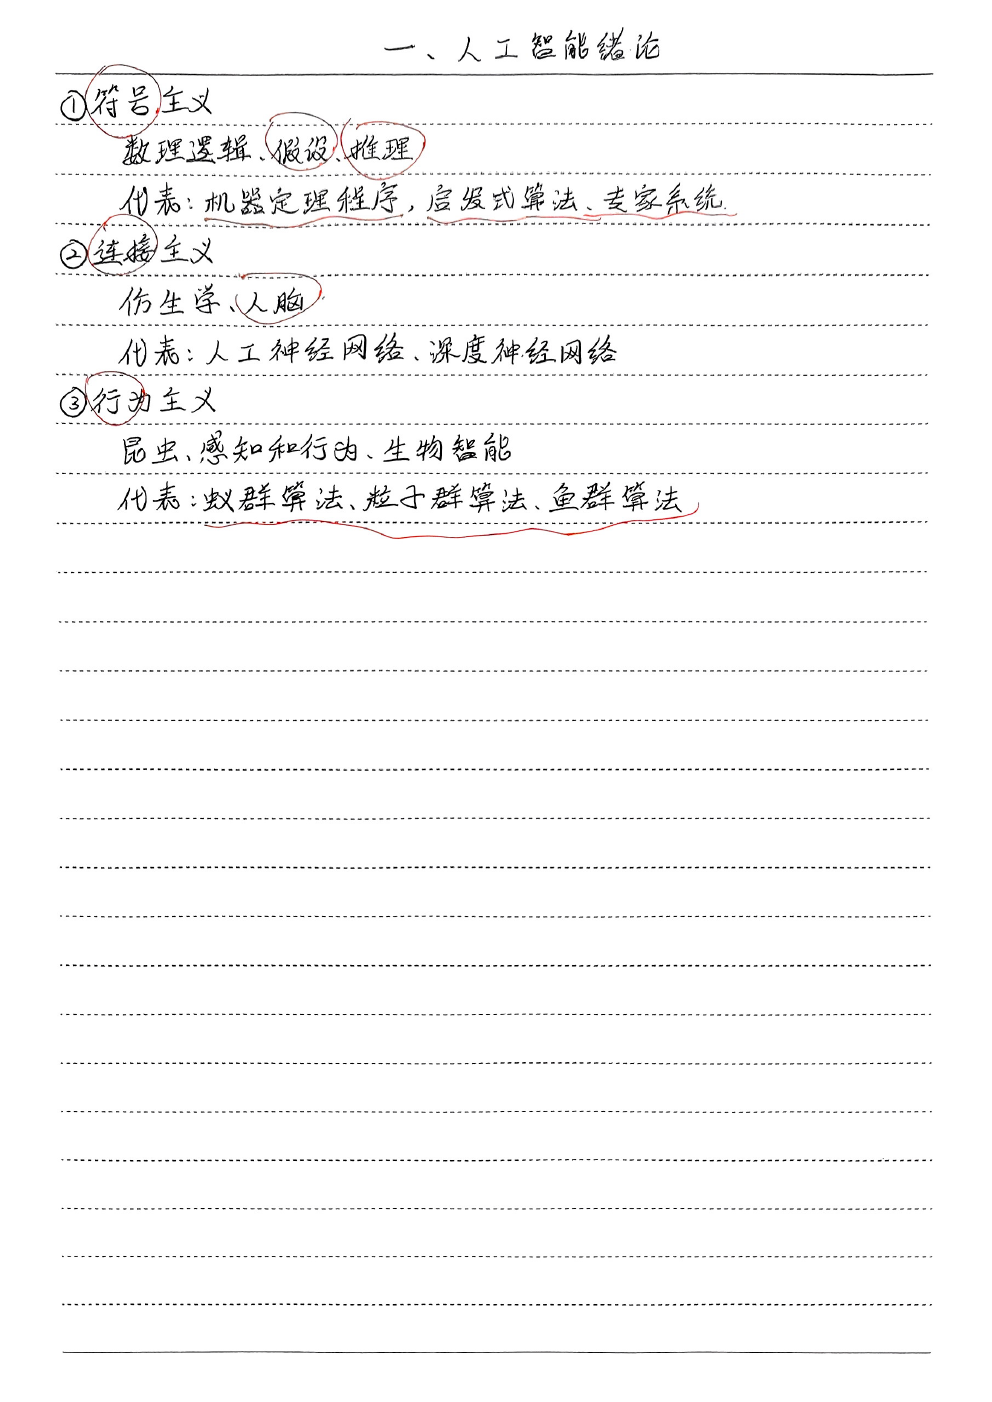 一、人工智能绪论
①符号主义
数理逻辑、假设、推理
代表：机器定理程序，启发式算法、专家系统.
②连接主义
仿生学、人脑
代表：人工神经网络、深度神经网络
③行为主义
昆虫、感知和行为、生物智能
代表：蚁群算法、粒子群算法、鱼群算法